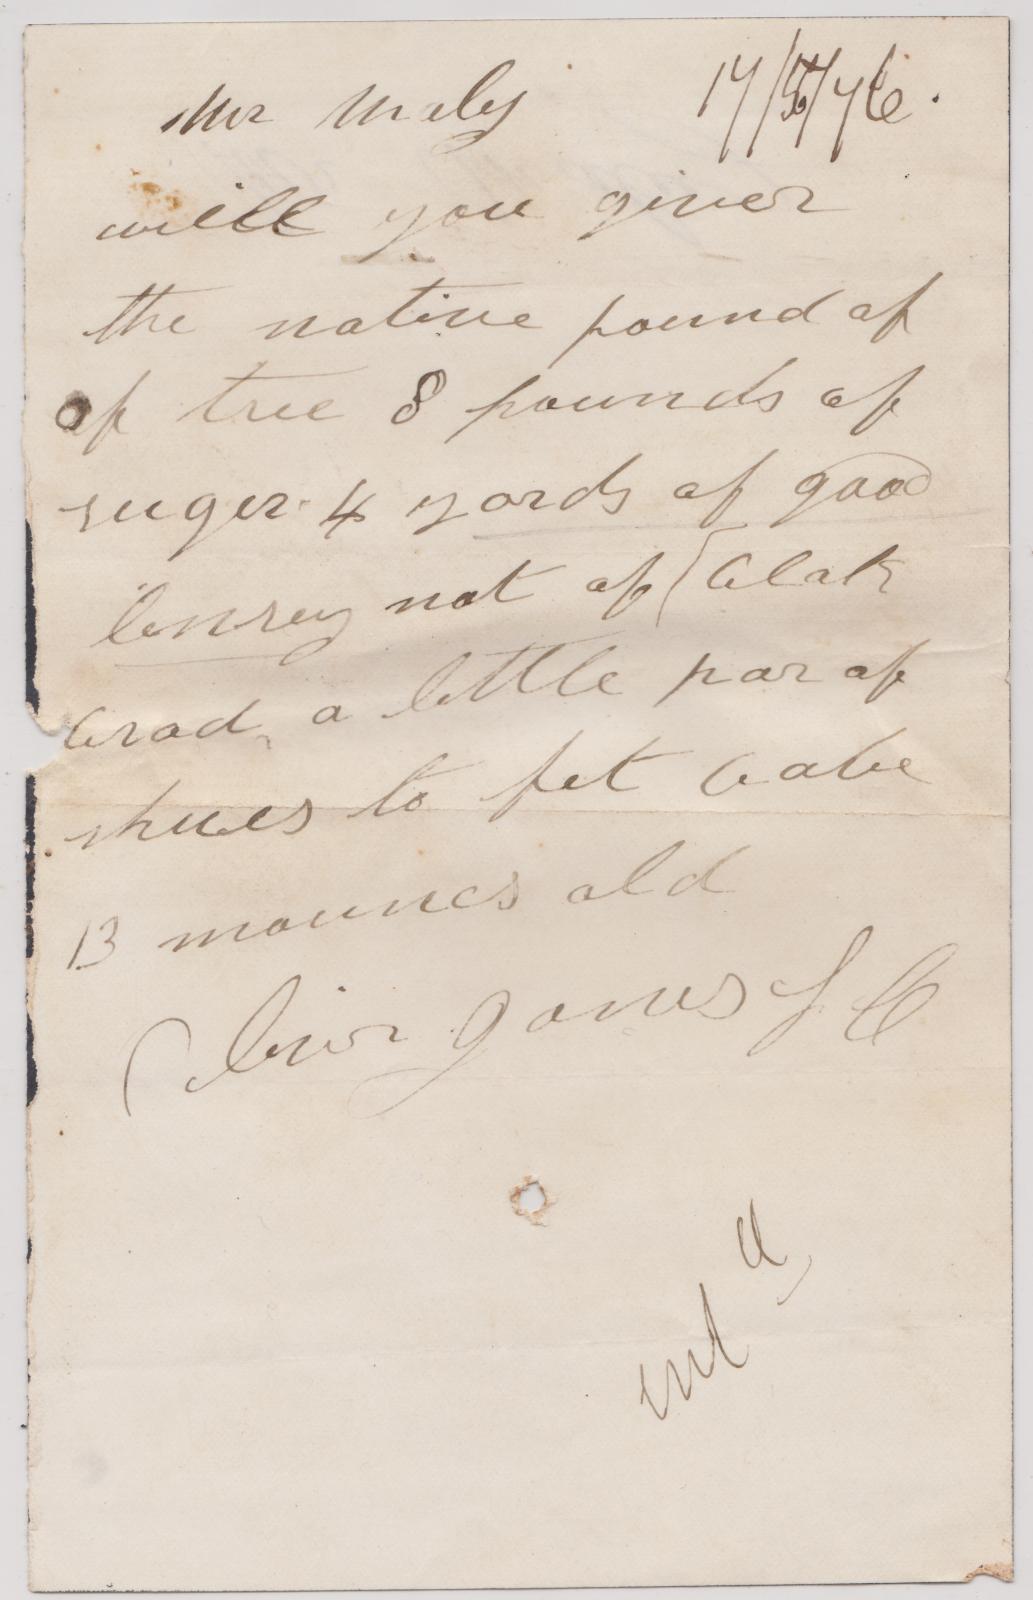 Mr Maley 17/5/76.
will you giver
the native pound of
of tree 8 pounds of
suger. 4 yards of good
linsey not of blak
brad a little par of
shues to fet babe
13 mounes old
Jones